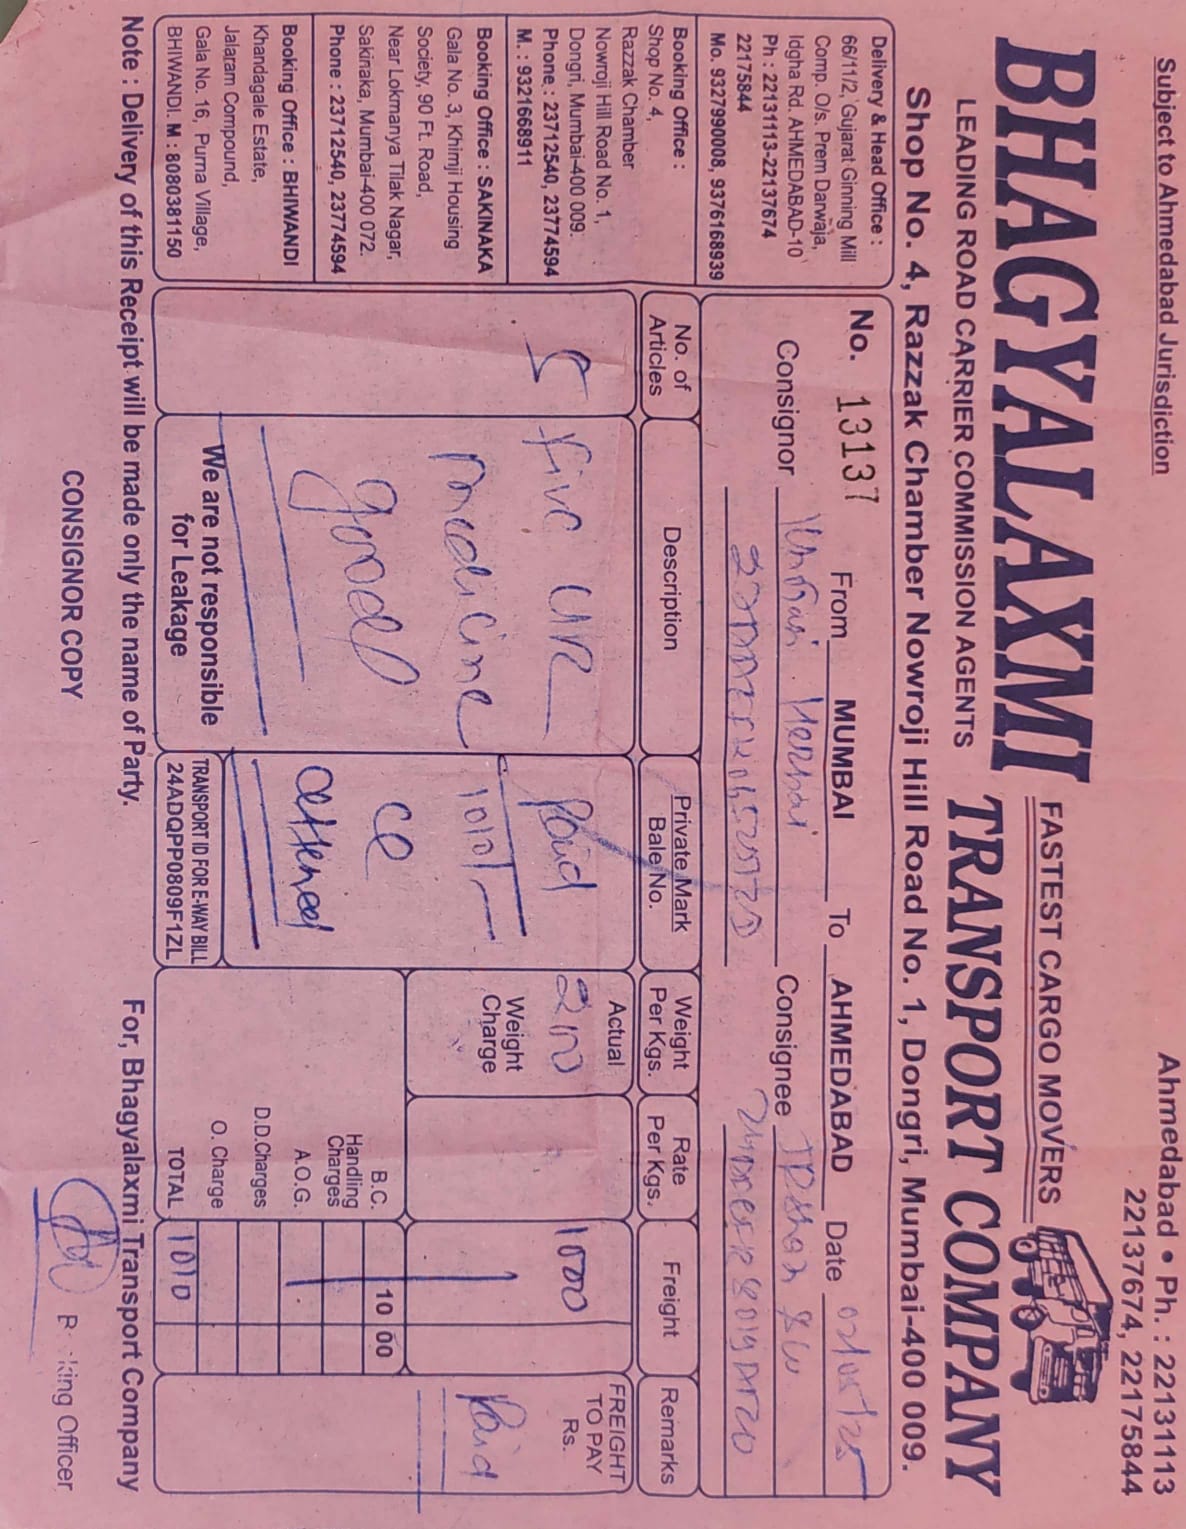 Subject to Ahmedabad Jurisdiction
Ahmedabad • Ph. : 22131113
22137674, 22175844
BHAGYALAXMI
FASTEST CARGO MOVERS
TRANSPORT COMPANY
LEADING ROAD CARRIER COMMISSION AGENTS
Shop No. 4, Razzak Chamber Nowroji Hill Road No. 1, Dongri, Mumbai-400 009.
Delivery & Head Office :
66/11/2, Gujarat Ginning Mill
Comp. O/s. Prem Darwaja,
Idgha Rd. AHMEDABAD-10
Ph : 22131113-22137674
22175844
Mo. 9327990008, 9376168939
Booking Office :
Shop No. 4,
Razzak Chamber
Nowroji Hill Road No. 1,
Dongri, Mumbai-400 009.
Phone : 23712540, 23774594
M. : 9321668911
Booking Office : SAKINAKA
Gala No. 3, Khimji Housing
Society, 90 Ft. Road,
Near Lokmanya Tilak Nagar,
Sakinaka, Mumbai-400 072.
Phone : 23712540, 23774594
Booking Office : BHIWANDI
Khandagale Estate,
Jalaram Compound,
Gala No. 16, Purna Village,
BHIWANDI. M : 8080381150
No. 13137 From MUMBAI To AHMEDABAD Date
Consignor
Consignee
No. of Articles
Description
Private Mark Bale No.
Weight Per Kgs.
Rate Per Kgs.
Freight
Remarks
5
Five
medicine
good
Paid
1010/-
Actual
Weight Charge
1000
FREIGHT TO PAY Rs.
Paid
B.C. 10 00
Handling Charges
A.O.G.
D.D.Charges
O. Charge
TOTAL 1010
We are not responsible for Leakage
TRANSPORT ID FOR E-WAY BILL
24ADQPP0809F1ZL
Note : Delivery of this Receipt will be made only the name of Party.
For, Bhagyalaxmi Transport Company
CONSIGNOR COPY
Officer